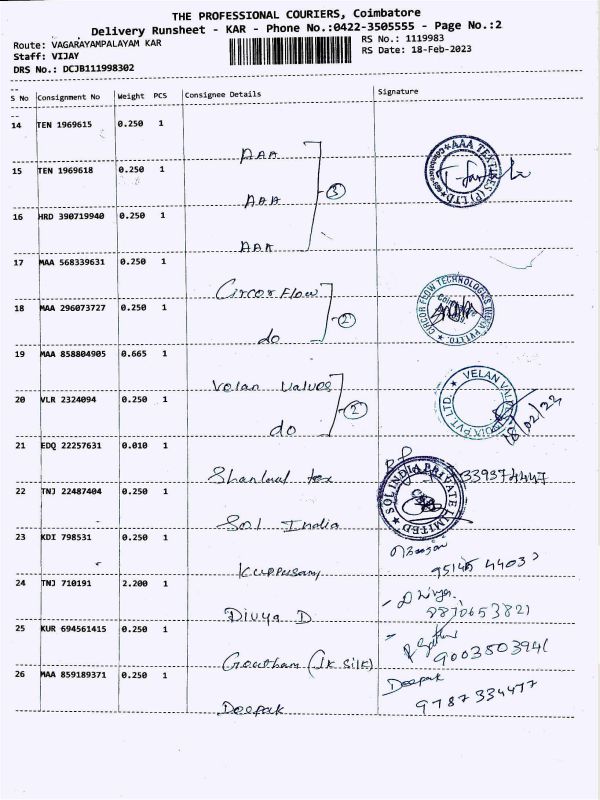 THE PROFESSIONAL COURIERS, Coimbatore
Delivery Runsheet - KAR - Phone No.:0422-3505555 - Page No.:2
Route: VAGARAYAMPALAYAM KAR
RS No.: 1119983
Staff: VIJAY
RS Date: 18-Feb-2023
DRS No.: DCJB111998302
S No Consignment No Weight PCS Consignee Details Signature
14 TEN 1969615 0.250 1
AAA
15 TEN 1969618 0.250 1
AAA 3
AAA TEXTILES (P) LTD
16 HRD 390719940 0.250 1
AAA
17 MAA 568339631 0.250 1
Circor Flow
CIRCOR FLOW TECHNOLOGIES INDIA PVT LTD.
18 MAA 296073727 0.250 1
do 2
19 MAA 858804905 0.665 1
Velan Valves
VELAN PVT. LTD.
20 VLR 2324094 0.250 1
do 2
21 EDQ 22257631 0.010 1
tex
22 TNJ 22487404 0.250 1
Sol India
SOL INDIA PRIVATE LIMITED
23 KDI 798531 0.250 1
Kuppusamy
24 TNJ 710191 2.200 1
Divya D
Divya
9870653821
25 KUR 694561415 0.250 1
Goutham (JK Silk)
9003503941
26 MAA 859189371 0.250 1
Deepak
Deepak
9787334477